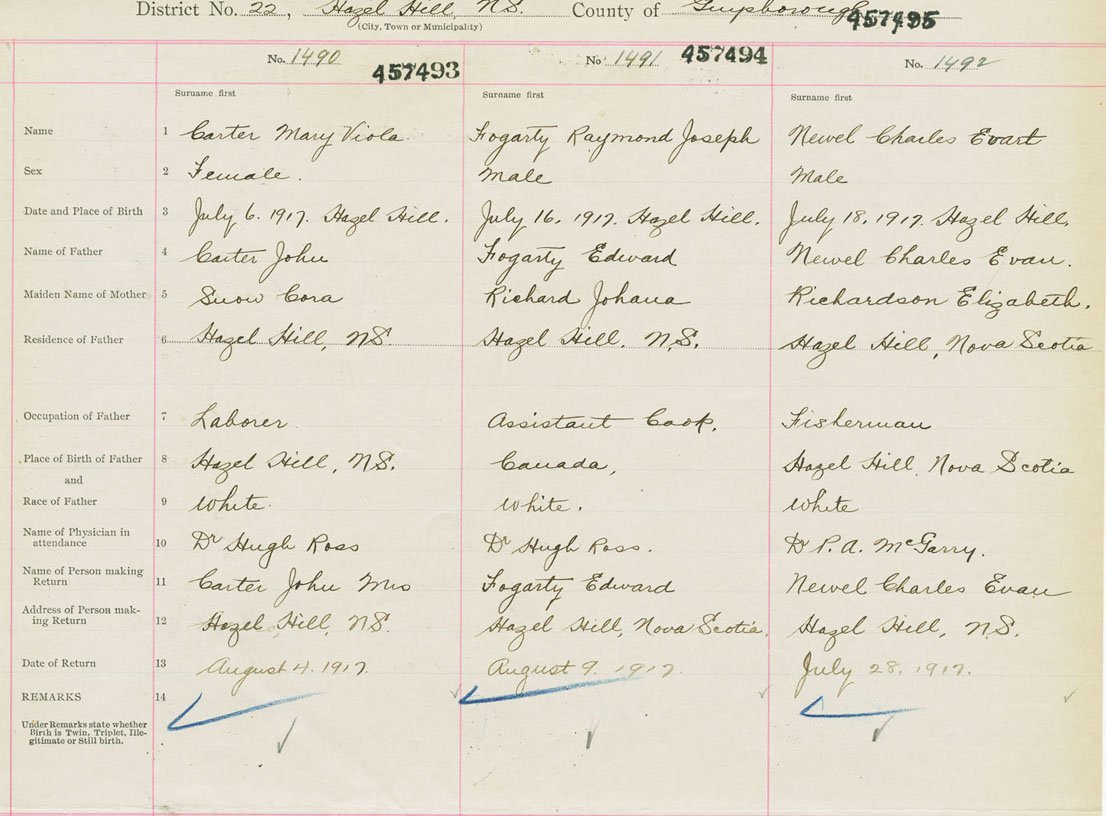 District No. 22, Hazel Hill, N.S. County of Guysborough
(City, Town or Municipality)
457495
No. 1490 457493 No. 1491 457494 No. 1492
Surname first Surname first Surname first
Name 1 Carter Mary Viola Fogarty Raymond Joseph Newel Charles Evart
Sex 2 Female. Male Male
Date and Place of Birth 3 July 6. 1917. Hazel Hill. July 16, 1917. Hazel Hill. July 18, 1917. Hazel Hill.
Name of Father 4 Carter John Fogarty Edward Newel Charles Evan.
Maiden Name of Mother 5 Snow Cora Richard Johana Richardson Elizabeth.
Residence of Father 6 Hazel Hill, N.S. Hazel Hill. N.S. Hazel Hill, Nova Scotia
Occupation of Father 7 Laborer Assistant Cook. Fisherman
Place of Birth of Father 8 Hazel Hill, N.S. Canada, Hazel Hill, Nova Scotia
and
Race of Father 9 White White. White
Name of Physician in
attendance 10 Dr Hugh Ross Dr Hugh Ross. Dr P. A. McGarry.
Name of Person making
Return 11 Carter John Mrs Fogarty Edward Newel Charles Evan
Address of Person mak-
ing Return 12 Hazel Hill, N.S. Hazel Hill, Nova Scotia. Hazel Hill, N.S.
Date of Return 13 August 4. 1917. August 9. 1917. July 28, 1917.
REMARKS 14
Under Remarks state whether
Birth is Twin, Triplet, Ille-
gitimate or Still birth.